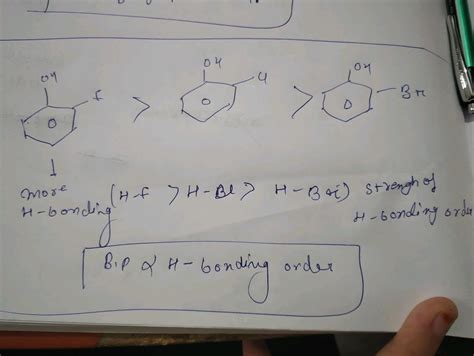 OH OH OH
F > Cl > Br
more (H-F > H-Cl > H-Br) strength of
H-bonding H-bonding order
B.P ∝ H-bonding order